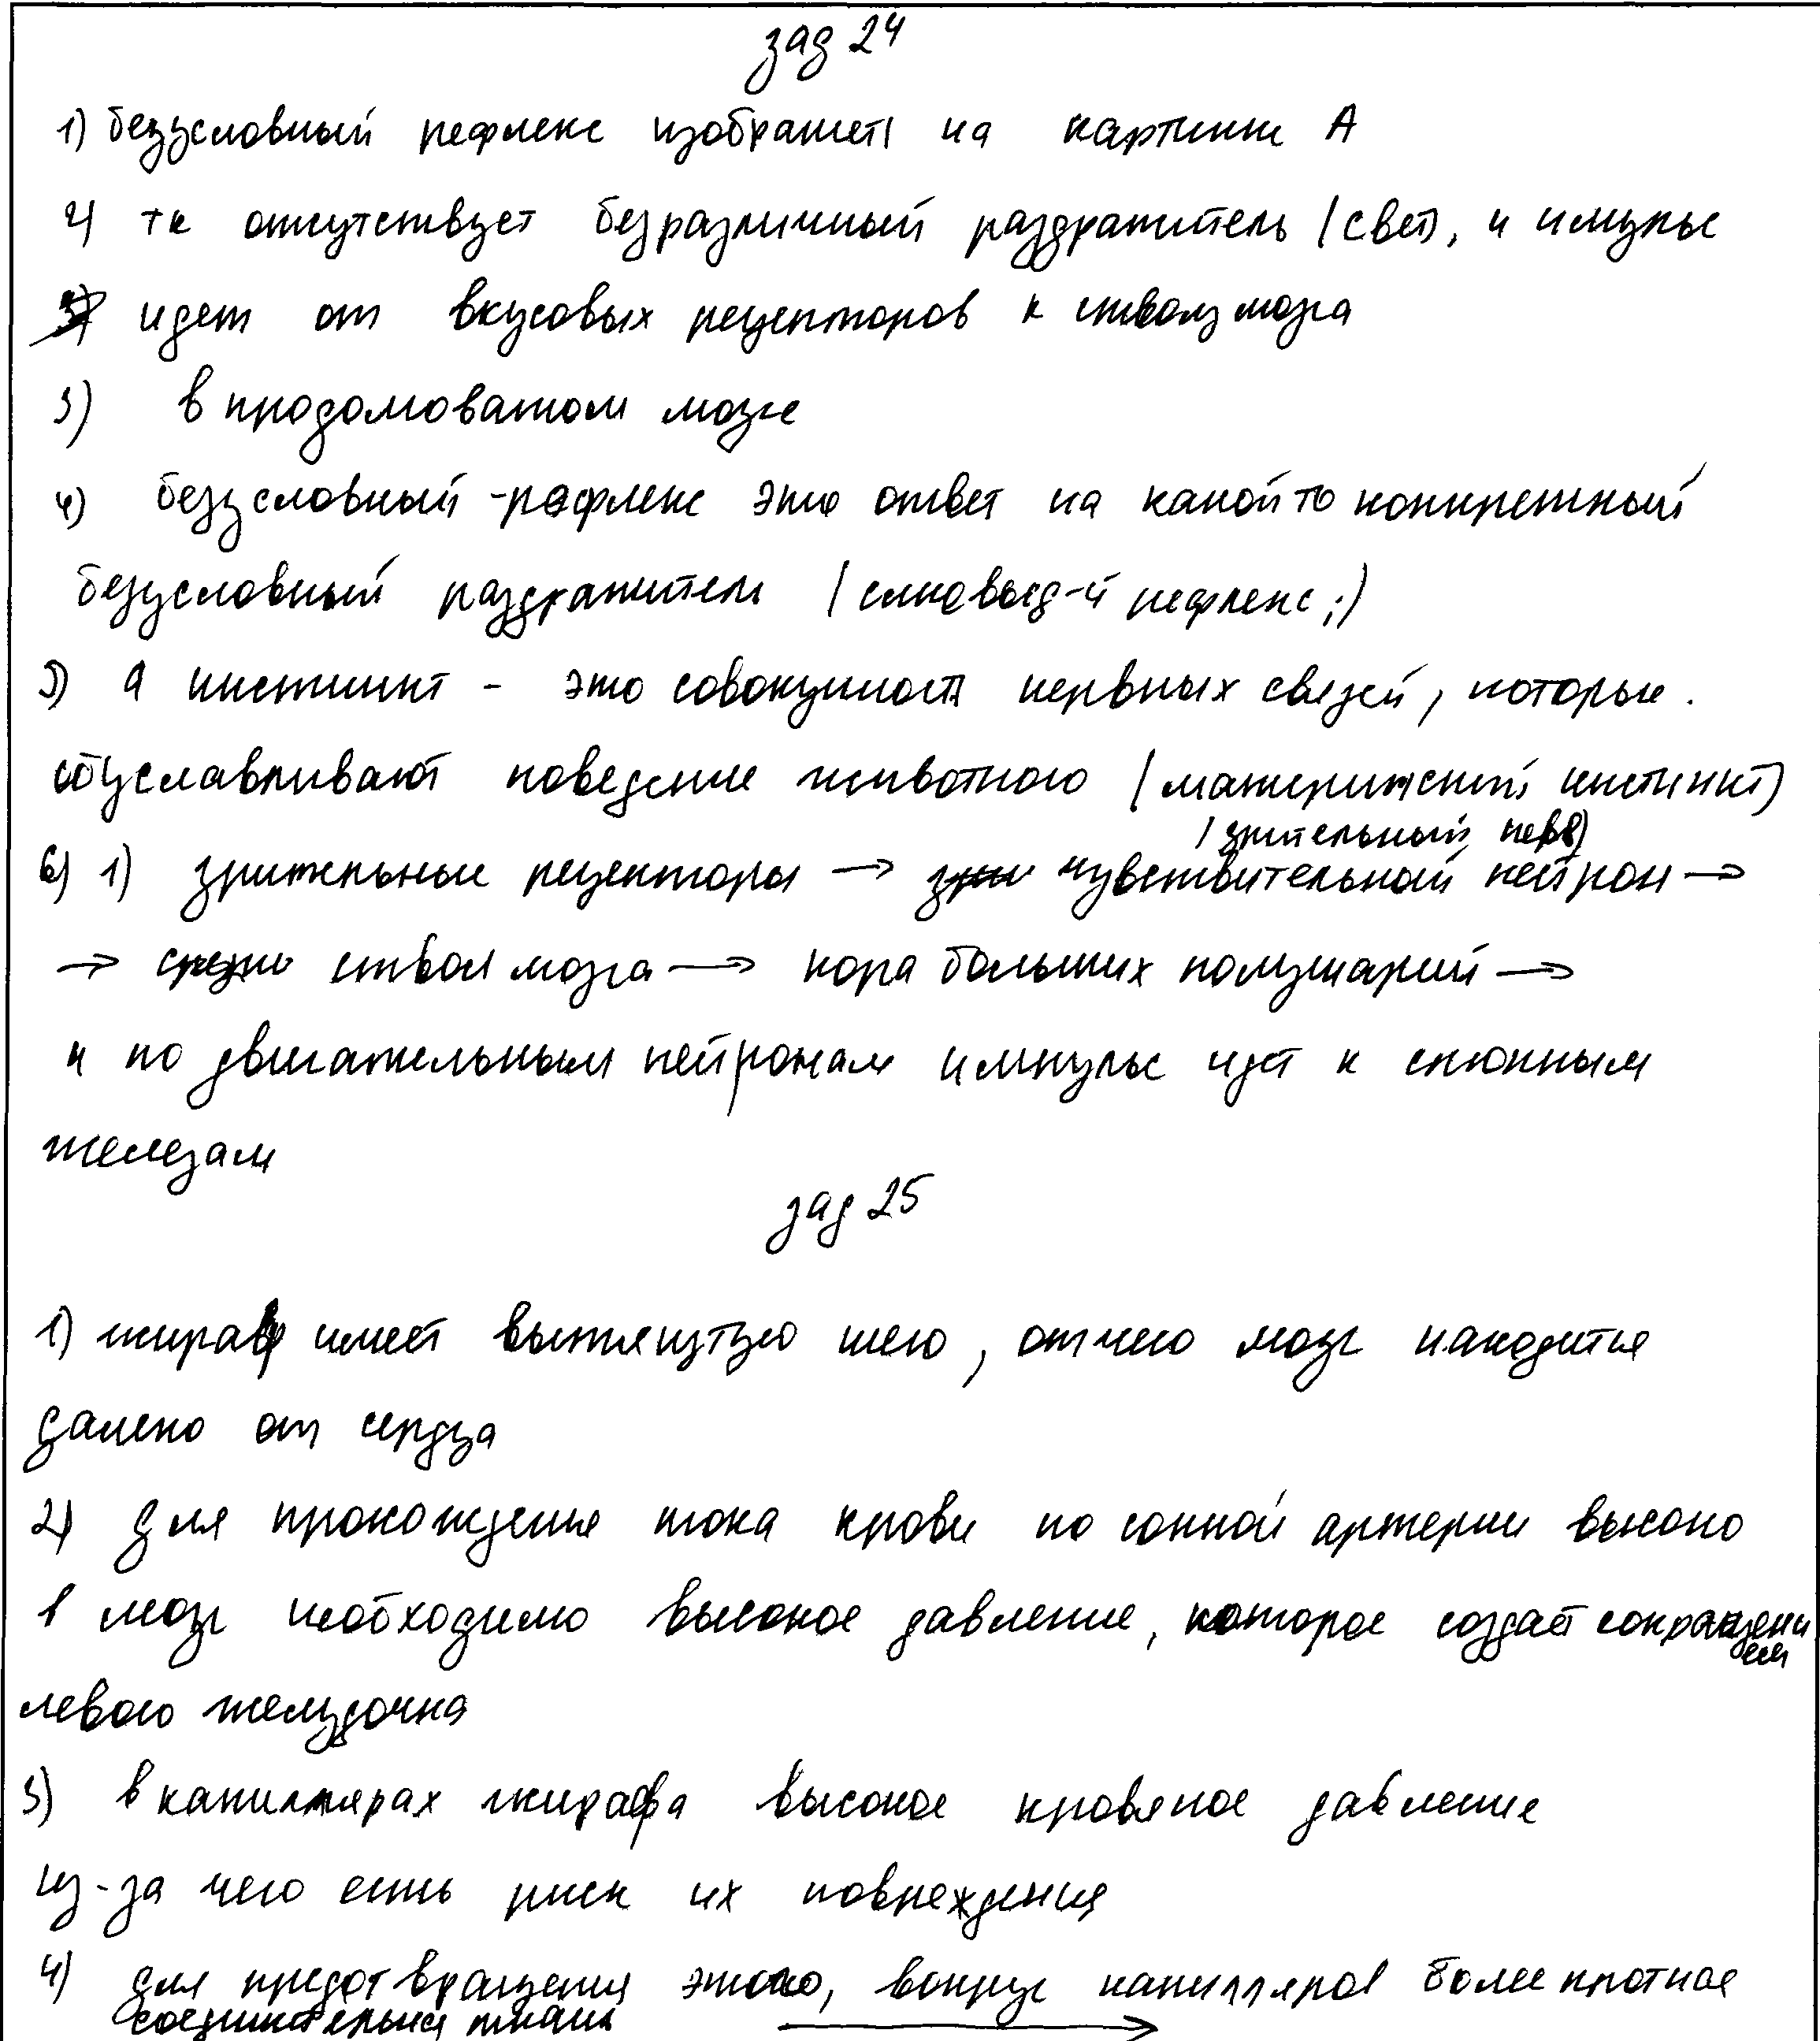 зад 24
1) безусловный рефлекс изображет на картинке А
2) тк отсутствует безразличный раздражитель (свет), и импульс
3) идет от вкусовых рецепторов к стволу мозга
3) в продолговатом мозге
4) безусловный -рефлекс это ответ на какой то конкретный
безусловный раздражитель (слюновыд-й рефлекс;)
5) а инстинкт - это совокупность нервных связей, которые.
обуславливают поведение животного (материнский инстинкт)
(зрительный нерв)
6) 1) зрительные рецепторы → зри чувствительный нейрон →
→ средне ствол мозга → кора больших полушарий →
и по двигательным нейронам импульс идет к слюнным
железам
зад 25
1) жираф имеет вытянутую шею, отчего мозг находится
далеко от сердца
2) для прохождения тока крови по сонной артерии высоко
в мозг необходимо высокое давление, которое создаёт сокращени
ем
левого желудочка
3) в капиллярах жирафа высокое кровяное давление
из-за чего есть риск их повреждения
4) для предотвращения этого, вокруг капилляров более плотная
соединительная ткань →